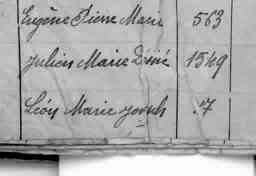 Eugène Pierre Marie 563
Julien Marie Désiré 1549
Léon Marie Joseph .7